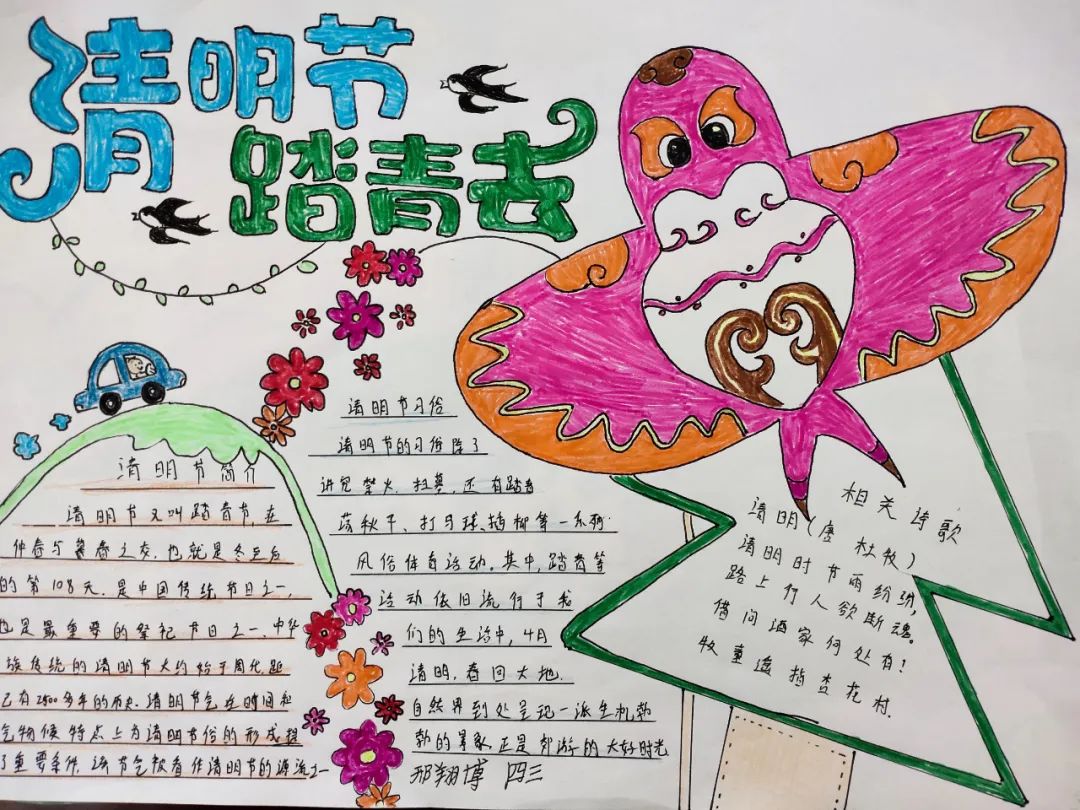 清明节
踏青去
清明节简介
清明节又叫踏青节,在
仲春与暮春之交,也就是冬至后
的第108天.是中国传统节日之一,
也是最重要的祭祀节日之一.中华
族传统的清明节大约始于周代,距
已有2500多年的历史.清明节气在时间和
气物候特点上为清明节俗的形成提
了重要条件,该节气被看作清明节的源流之一
清明节习俗
清明节的习俗除了
讲究禁火、扫墓,还有踏青
荡秋千、打马球、插柳等一系列
风俗体育活动。其中,踏青等
活动依旧流行于我
们的生活中,4月
清明,春回大地.
自然界到处呈现一派生机勃
勃的景象,正是郊游的大好时光
邢翔博 四三
相关诗歌
清明(唐 杜牧)
清明时节雨纷纷,
路上行人欲断魂。
借问酒家何处有!
牧童遥指杏花村.